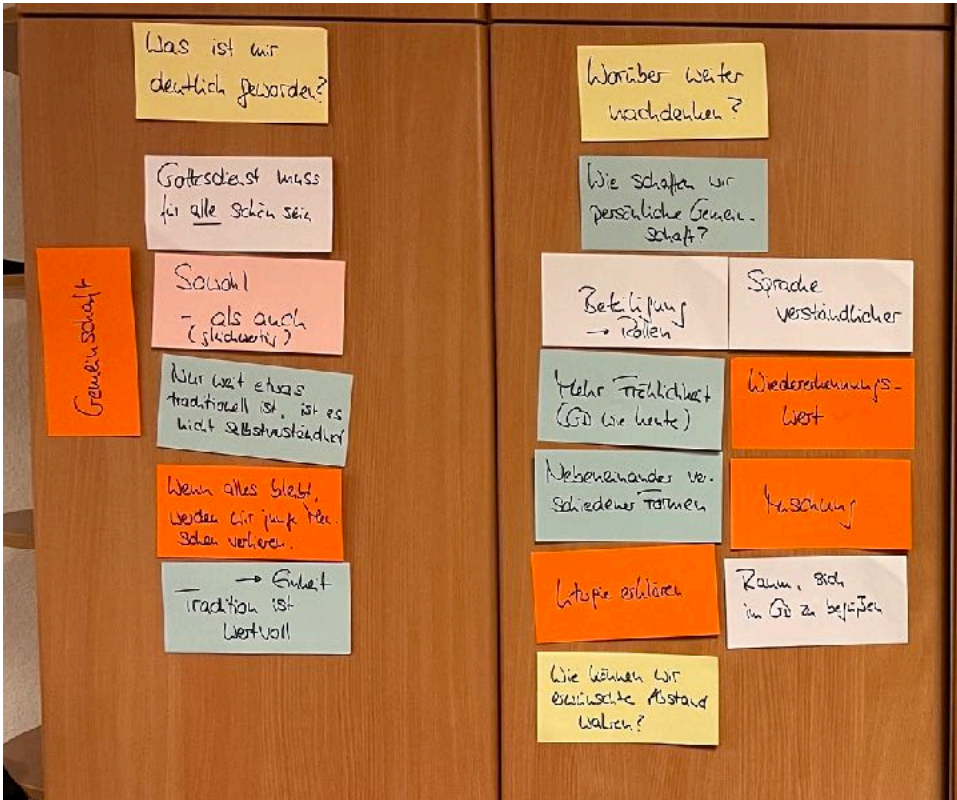 Was ist mir
deutlich geworden?
Gottesdienst muss
für alle schön sein
Gemeinschaft
Sowohl
- als auch
(gleichwertig)
Nur weil etwas
traditionell ist, ist es
nicht selbstverständlich
Wenn alles bleibt,
werden wir junge Men-
schen verlieren.
→ Einheit
Tradition ist
wertvoll
Worüber weiter
nachdenken?
Wie schaffen wir
persönliche Gemein-
schaft?
Beteiligung
→ Rollen
Sprache
verständlicher
Mehr Fröhlichkeit
(GD wie heute)
Wiedererkennungs-
wert
Nebeneinander ver-
schiedener Formen
Mischung
erklären
Raum, sich
im GD zu begrüßen
Wie können wir
erwünschte Abstand
wahren?